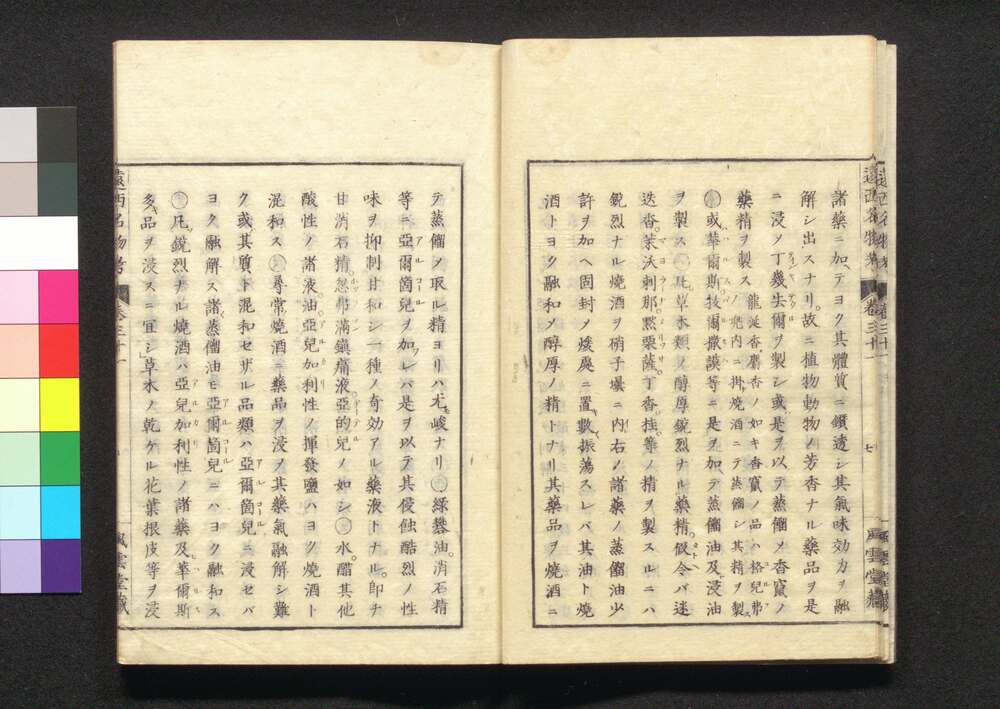 諸藥ニ加ヘテヨク其體質ニ鑽透シ其氣味効力ヲ融
解シ出スナリ故ニ植物動物ノ芳香ナル藥品ヲ是
ニ浸ノ丁幾丟爾ヲ製シ或是ヲ以テ蒸餾ノ香竄ノ
藥精ヲ製ス龍涎香麝香ノ如キ香竄ノ品ハ格兒弗ノ兠内ニ掛ケ燒酒ニテ蒸餾シ其精ヲ製ス
或華爾斯牧爾撒謨等ニ是ヲ加テ蒸餾油及浸油
ヲ製ス 此草木類ノ醇厚鋭烈ナル藥精假令バ迷
迭香茉沃刺那黙栗薩丁香桂等ノ精ヲ製スルニハ
鋭烈ナル燒酒ヲ硝子壜ニ内右ノ諸藥ノ蒸餾油少
許ヲ加ヘ固封ノ煖處ニ置數振蕩スレバ其油ト燒
酒トヨク融和ノ醇厚ノ精トナリ其藥品ヲ燒酒ニ
七
遠西名物考 卷三十一
風雲堂藏
テ蒸餾ノ取ル精ヨリハ尤峻ナリ 綠礬油消石精
等ニ亞爾箇兒ヲ加フレバ是ヲ以テ其侵蝕酷烈ノ性
味ヲ抑制甘和シ一種ノ奇効アル藥液トナル即チ
甘消石精忽弗滿鎭痛液亞的兒ノ如シ 水醋其他
酸性ノ諸液油亞兒加利性ノ揮發鹽ハヨク燒酒ト
混和ス 尋常燒酒ニ藥品ヲ浸ノ其藥氣融解シ難
ク或其質ト混和セザル品類ハ亞爾箇兒ニ浸セバ
ヨク融解ス諸蒸餾油モ亞爾箇兒ニハヨク融和ス
凡鋭烈ナル燒酒ハ亞兒加利性ノ諸藥及華爾斯
多キ品ヲ浸スニ宜シ草木ノ乾ケル花葉根皮等ヲ浸
遠西名物考 卷三十一
風雲堂藏